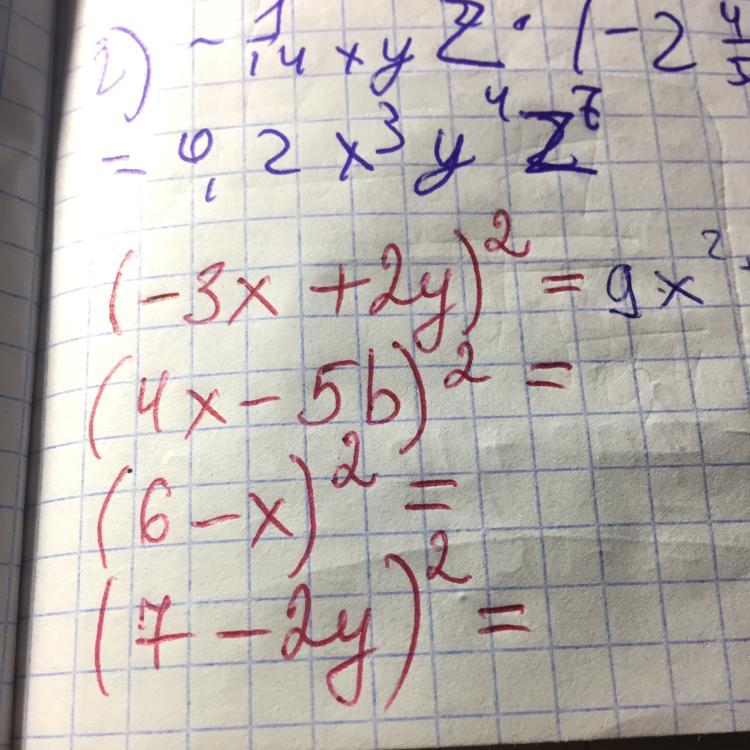 2) - 1/14 xyz · (-2 4/5
= 0,2 x³ y⁴ z⁷
(-3x + 2y)² = 9x²
(4x - 5b)² =
(6 - x)² =
(7 - 2y)² =